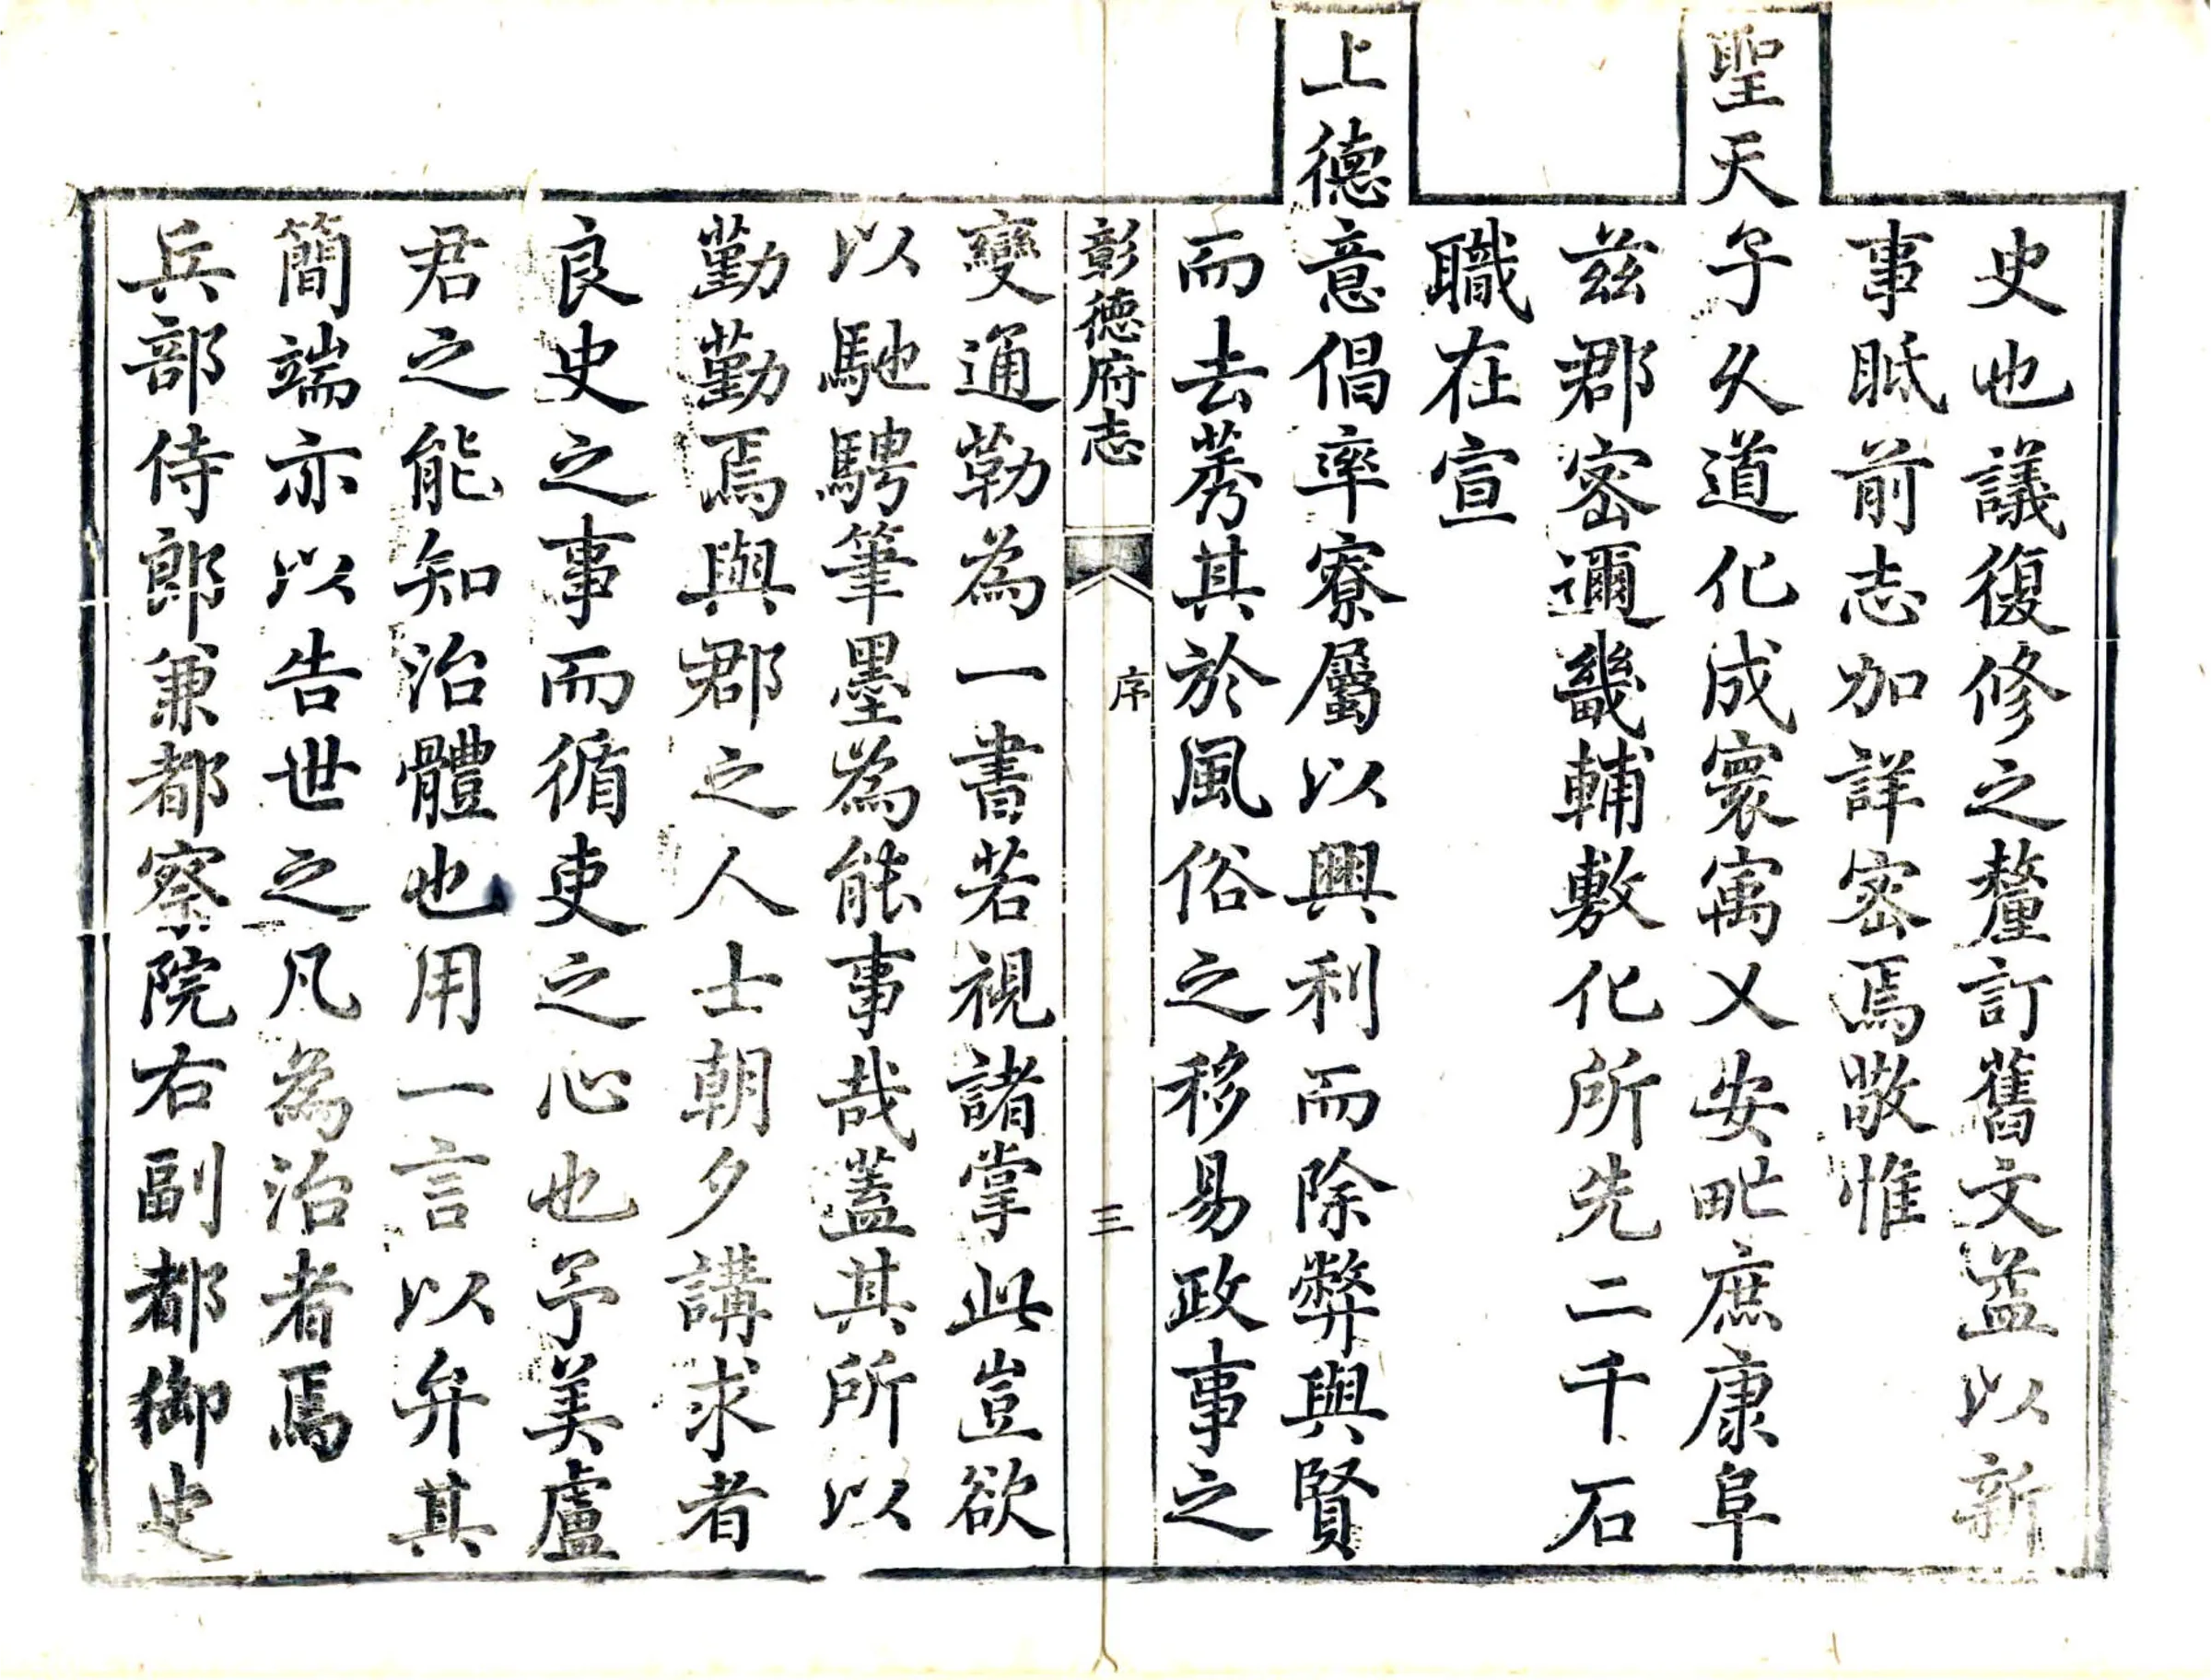 史也議復修之釐訂舊文益以新
事眡前志加詳密焉敬惟
聖天子久道化成寰寓乂安甿庶康阜
茲郡密邇畿輔敷化所先二千石
職在宣
上德意倡率寮屬以興利而除弊與賢
而去莠其於風俗之移易政事之
彰德府志
序
三
變通勒為一書若視諸掌此豈欲
以馳騁筆墨為能事哉蓋其所以
勤勤焉與郡之人士朝夕講求者
良史之事而循吏之心也予美盧
君之能知治體也用一言以弁其
簡端亦以告世之凡為治者焉
兵部侍郎兼都察院右副都御史